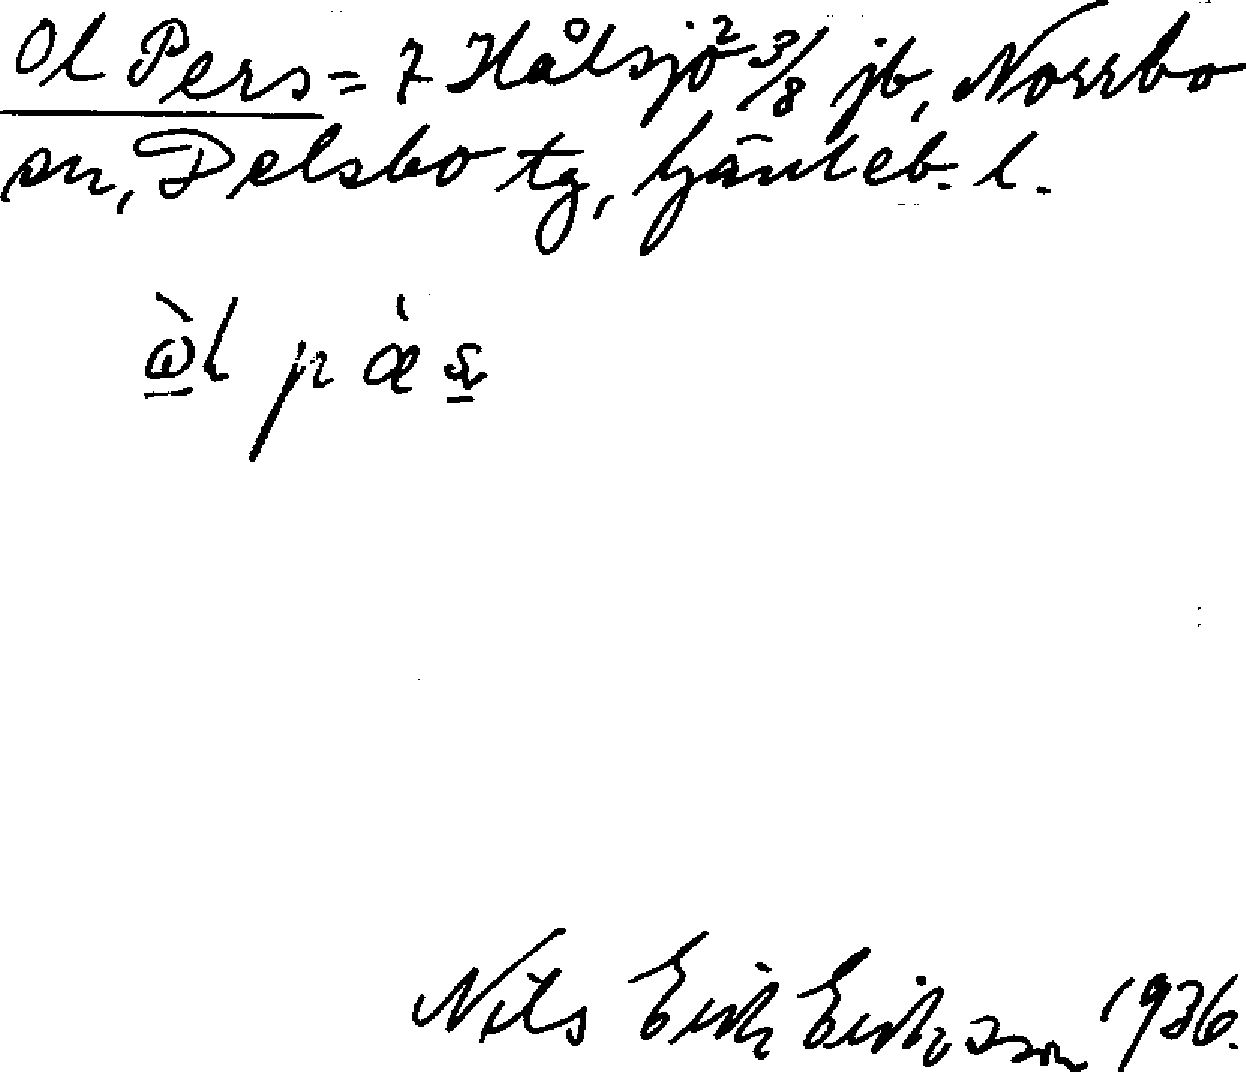 Ol Pers = 7 Hålsjö² 3/8 jb, Norrbo
sn, Delsbo tg, Gävleb. l.
ὼl pὰs
Nils Erik Eriksson 1936.